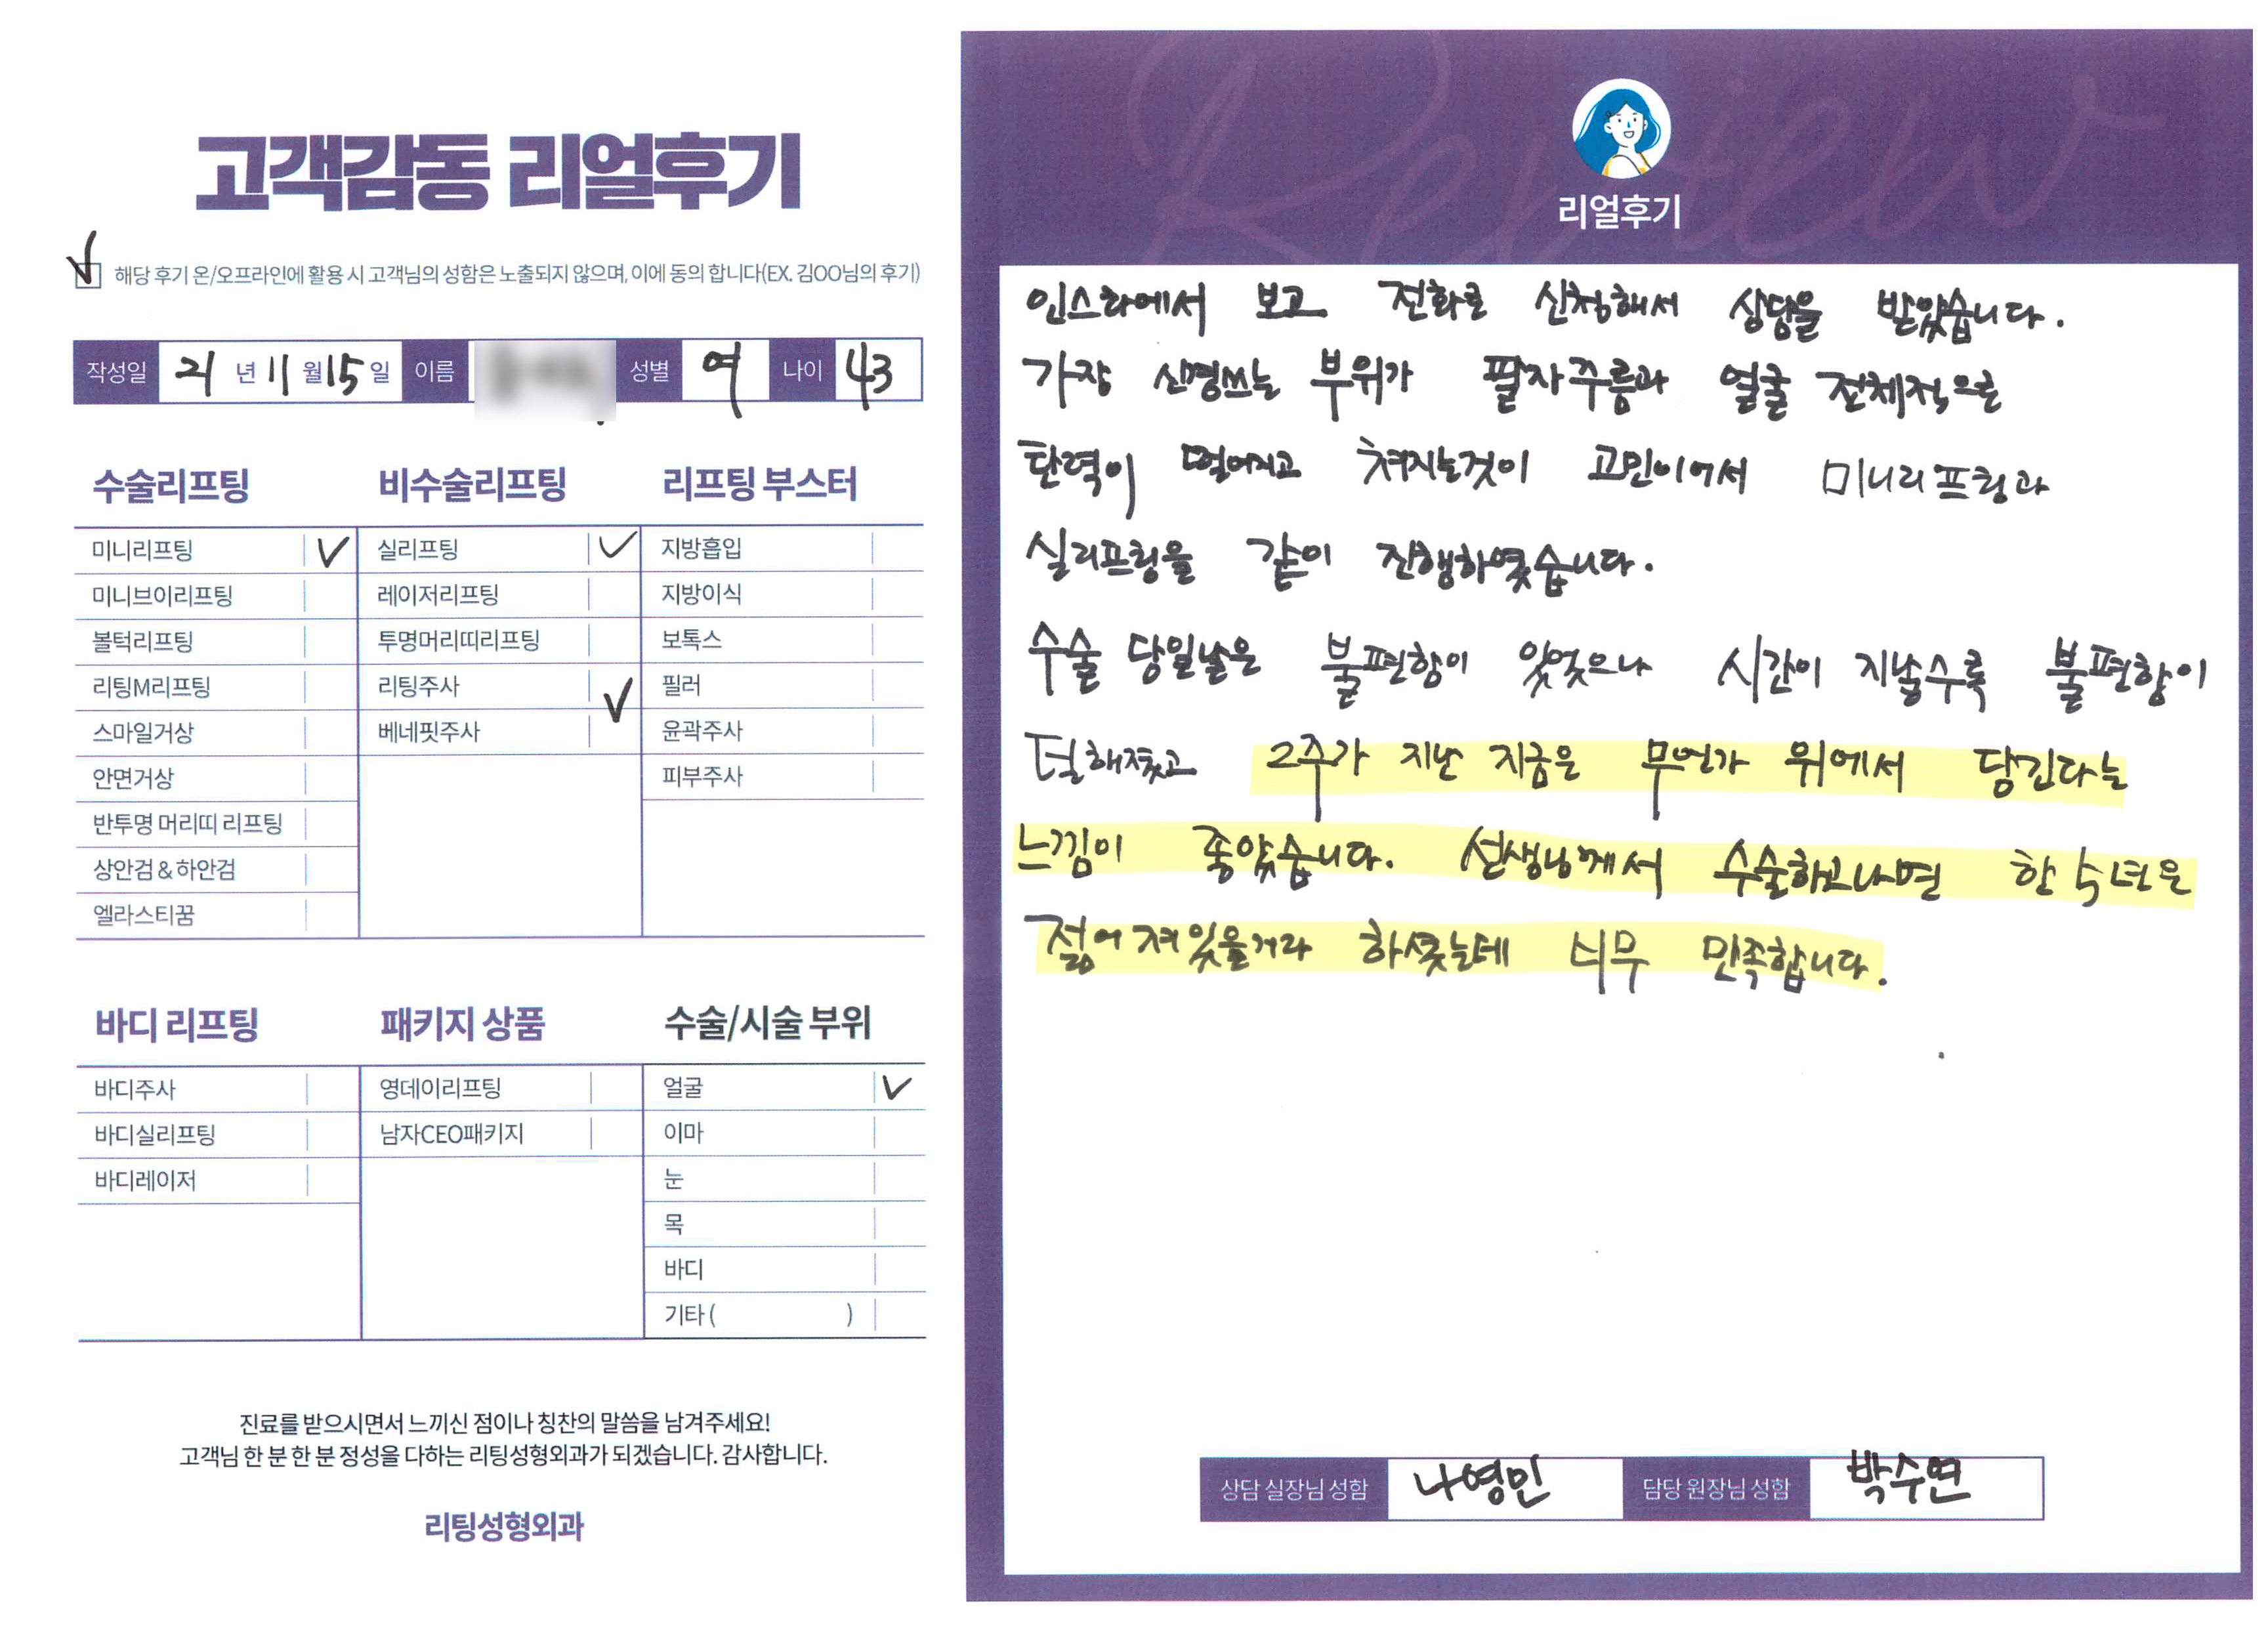 고객감동 리얼후기
해당 후기 온/오프라인에 활용 시 고객님의 성함은 노출되지 않으며, 이에 동의 합니다(EX. 김OO님의 후기)
작성일 21 년 11 월 15 일 이름 성별 여 나이 43
수술리프팅
미니리프팅
미니브이리프팅
볼턱리프팅
리팅M리프팅
스마일거상
안면거상
반투명 머리띠 리프팅
상안검&하안검
엘라스티꿈
비수술리프팅
실리프팅
레이저리프팅
투명머리띠리프팅
리팅주사
베네핏주사
리프팅 부스터
지방흡입
지방이식
보톡스
필러
윤곽주사
피부주사
바디 리프팅
바디주사
바디실리프팅
바디레이저
패키지 상품
영데이리프팅
남자CEO패키지
수술/시술 부위
얼굴
이마
눈
목
바디
기타 ( )
진료를 받으시면서 느끼신 점이나 칭찬의 말씀을 남겨주세요!
고객님 한 분 한 분 정성을 다하는 리팅성형외과가 되겠습니다. 감사합니다.
리팅성형외과
Review
리얼후기
인스타에서 보고 전화로 신청해서 상담을 받았습니다.
가장 신경쓰는 부위가 팔자주름과 얼굴 전체적으로
탄력이 떨어지고 쳐지는것이 고민이어서 미니리프팅과
실리프팅을 같이 진행하였습니다.
수술 당일날은 불편함이 있었으나 시간이 지날수록 불편함이
덜해졌고 2주가 지난 지금은 무언가 위에서 당긴다는
느낌이 좋았습니다. 선생님께서 수술하고나면 한 5년은
젊어져있을거라 하셨는데 너무 만족합니다.
상담 실장님 성함 나영민 담당 원장님 성함 박수연